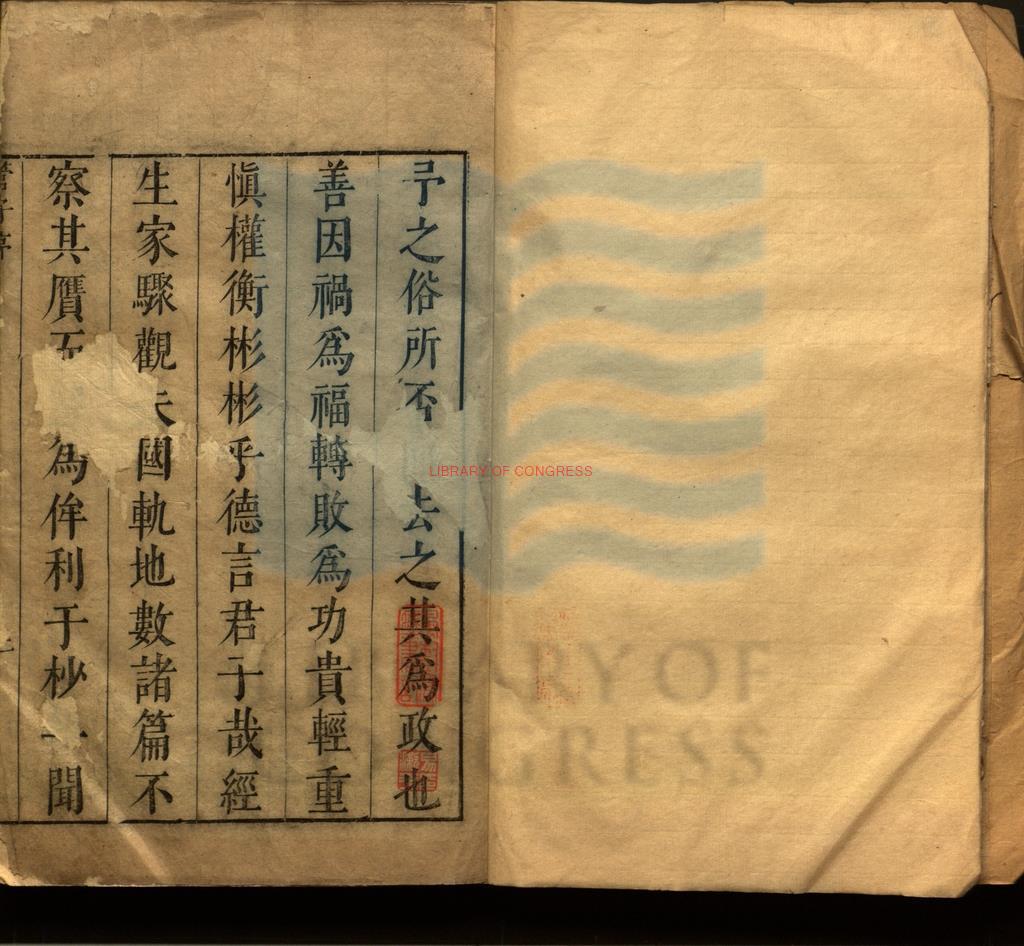 予之俗所否去之其爲政也
善因禍爲福轉敗爲功貴輕重
愼權衡彬彬乎德言君子哉經
生家驟觀夫國軌地數諸篇不
察其贗為侔利于杪一聞
管子序
LIBRARY OF CONGRESS
RY OF
GRESS